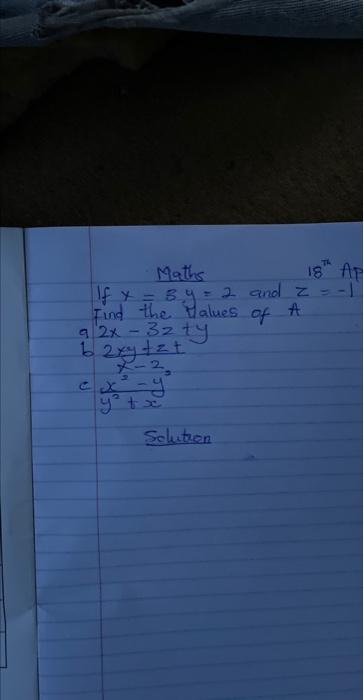 Maths 18th Ap
If x = 3 y = 2 and z = -1
Find the values of A
a 2x - 3z + y
b 2xy + z +
x - 2
c x² - y²
y² + x
Solution